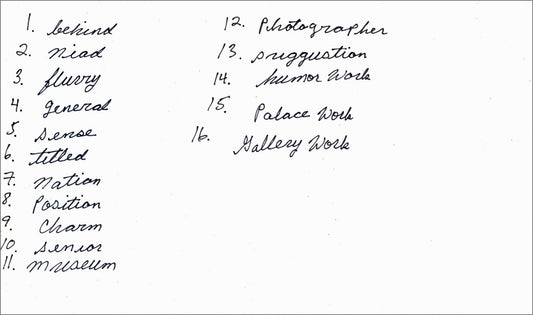 1. behind
2. Niad
3. flurry
4. general
5. Sense
6. titled
7. Nation
8. Position
9. Charm
10. Senior
11. Museum
12. Photographer
13. suggustion
14. humor Work
15. Palace Work
16. Gallery Work